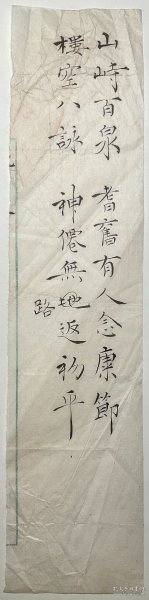 山峙百泉 耆舊有人念康節
樓空八詠 神僊無地返初平
路